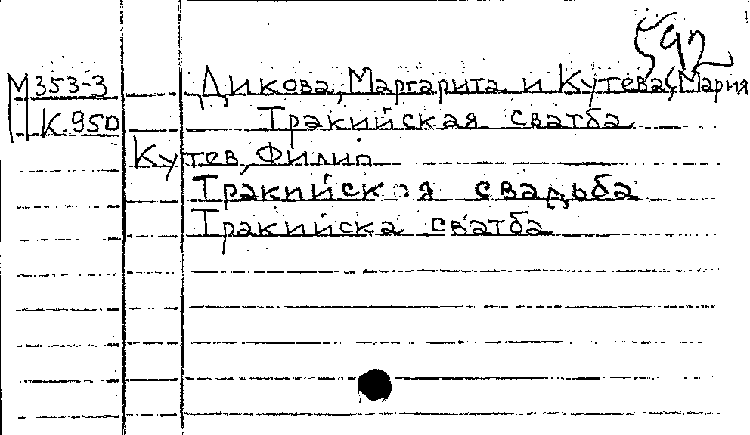 592
М353-3 Дикова, Маргарита и Кутева, Мария
К.950 Тракийская сватба
Кутев, Филип
Тракийская свадьба
Тракийска сватба